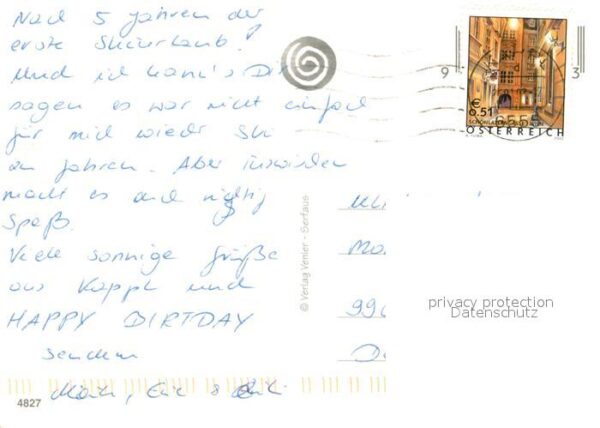 Nach 5 Jahren der
erste Skiurlaub!
Und ich kann's Dir
sagen es war nicht einfach
für mich wieder Ski
zu fahren. Aber inzwischen
macht es auch richtig
Spaß.
Viele sonnige Grüße
aus Kappl und
HAPPY BIRTDAY
senden
4827
© Verlag Venier - Serfaus
9 3
€ 0,51
ÖSTERREICH
6555
Ma
99
D
privacy protection
Datenschutz